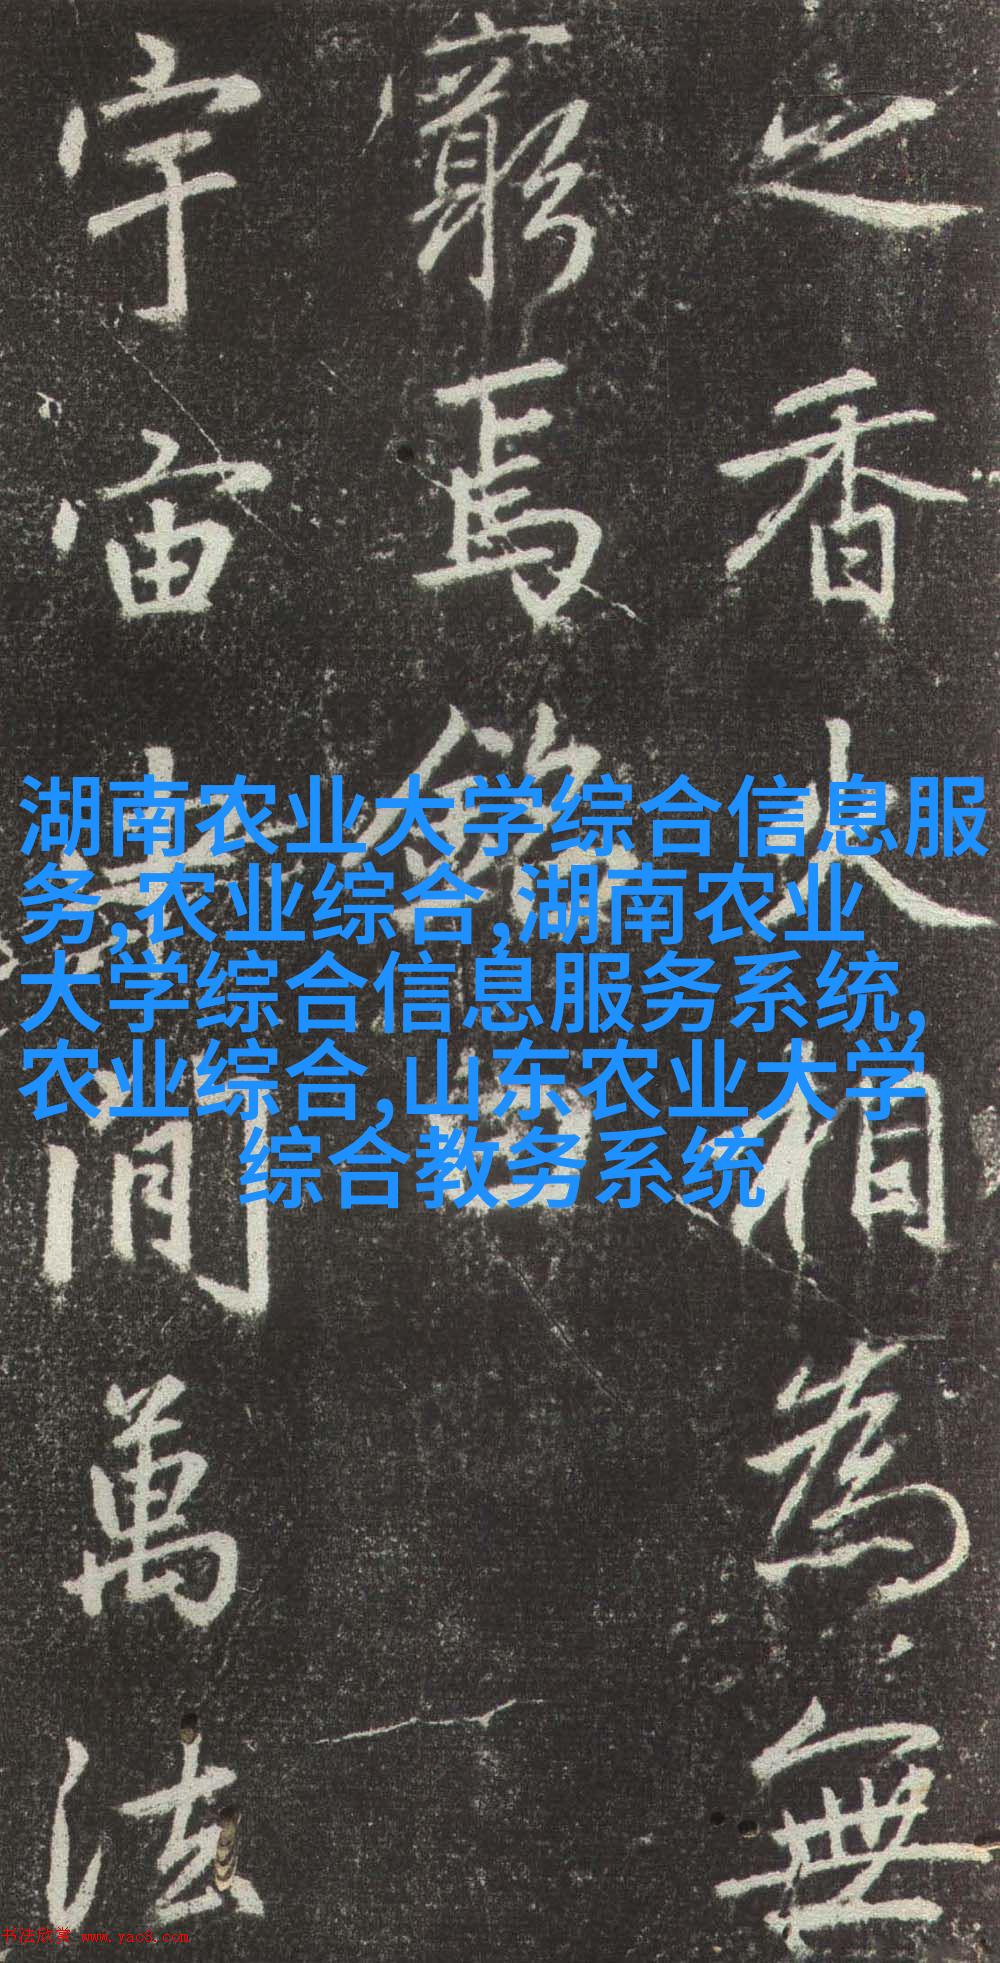 之香火相為無
窮焉銘曰
宇宙之間萬法
湖南农业大学综合信息服
务,农业综合,湖南农业
大学综合信息服务系统,
农业综合,山东农业大学
综合教务系统
书法欣赏 www.yac8.com